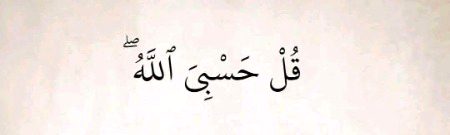 قُلْ حَسْبِىَ ٱللَّهُ ۖ